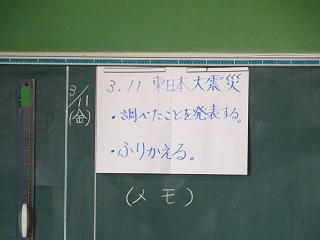 3/11
(金)
3.11 東日本大震災
・調べたことを発表する。
・ふりかえる。
(メモ)